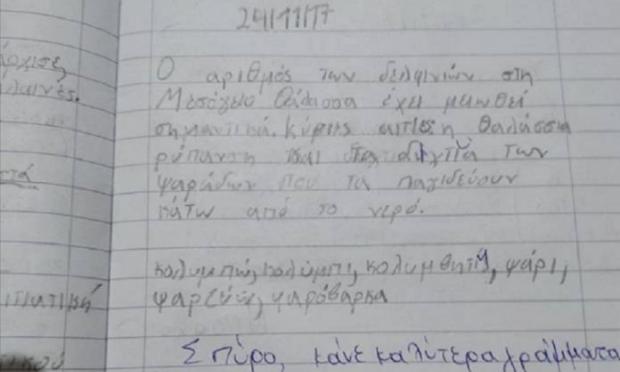 24/11/17
Ο αριθμός των δελφινιών στη
Μεσόγειο θάλασσα έχει μειωθεί
σημαντικά. Κύριες αιτίες η θαλάσσια
ρύπανση και τα δίχτυα των
ψαράδων που τα παγιδεύουν
κάτω από το νερό.
κολυμπώ, κολύμπι, κολυμβητής, ψάρι,
ψαρεύω, ψαρόβαρκα
Σπύρο, κάνε καλύτερα γράμματα